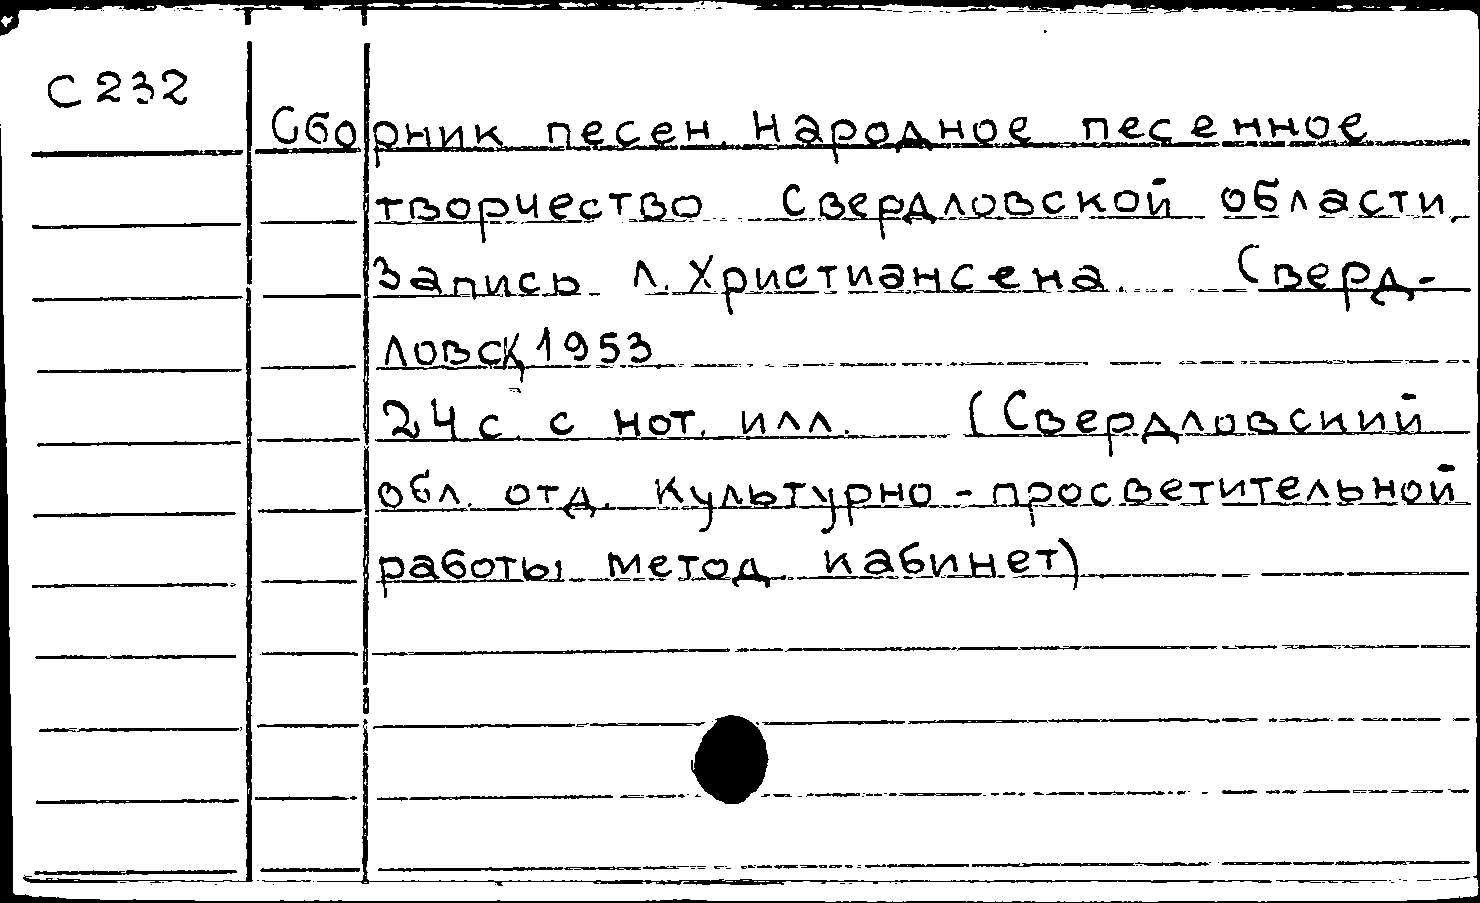 С 232
Сборник песен. Народное песенное
творчество Свердловской области.
Запись Л. Христиансена. Сверд-
ловск, 1953
24 с. с нот. илл. (Свердловский
обл. отд. культурно-просветительной
работы метод. кабинет)